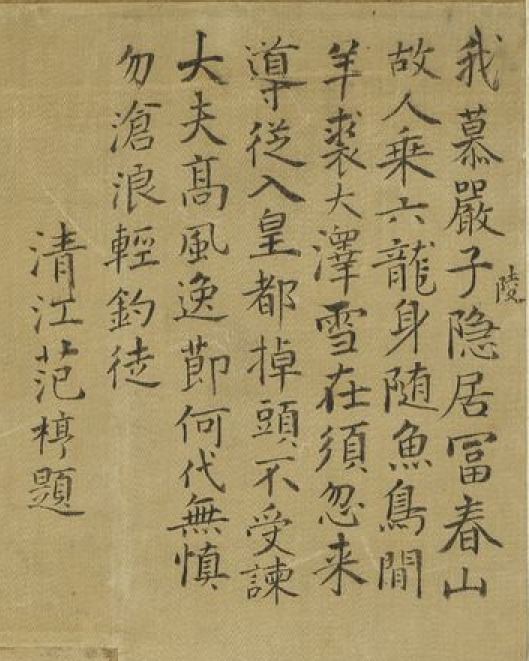 我慕嚴子陵隐居冨春山
故人乗六龍身随魚鳥閒
羊裘大澤雪在須忽来
導從入皇都掉頭不受諫
大夫髙風逸節何代無慎
勿滄浪輕釣徒
清江范梈題